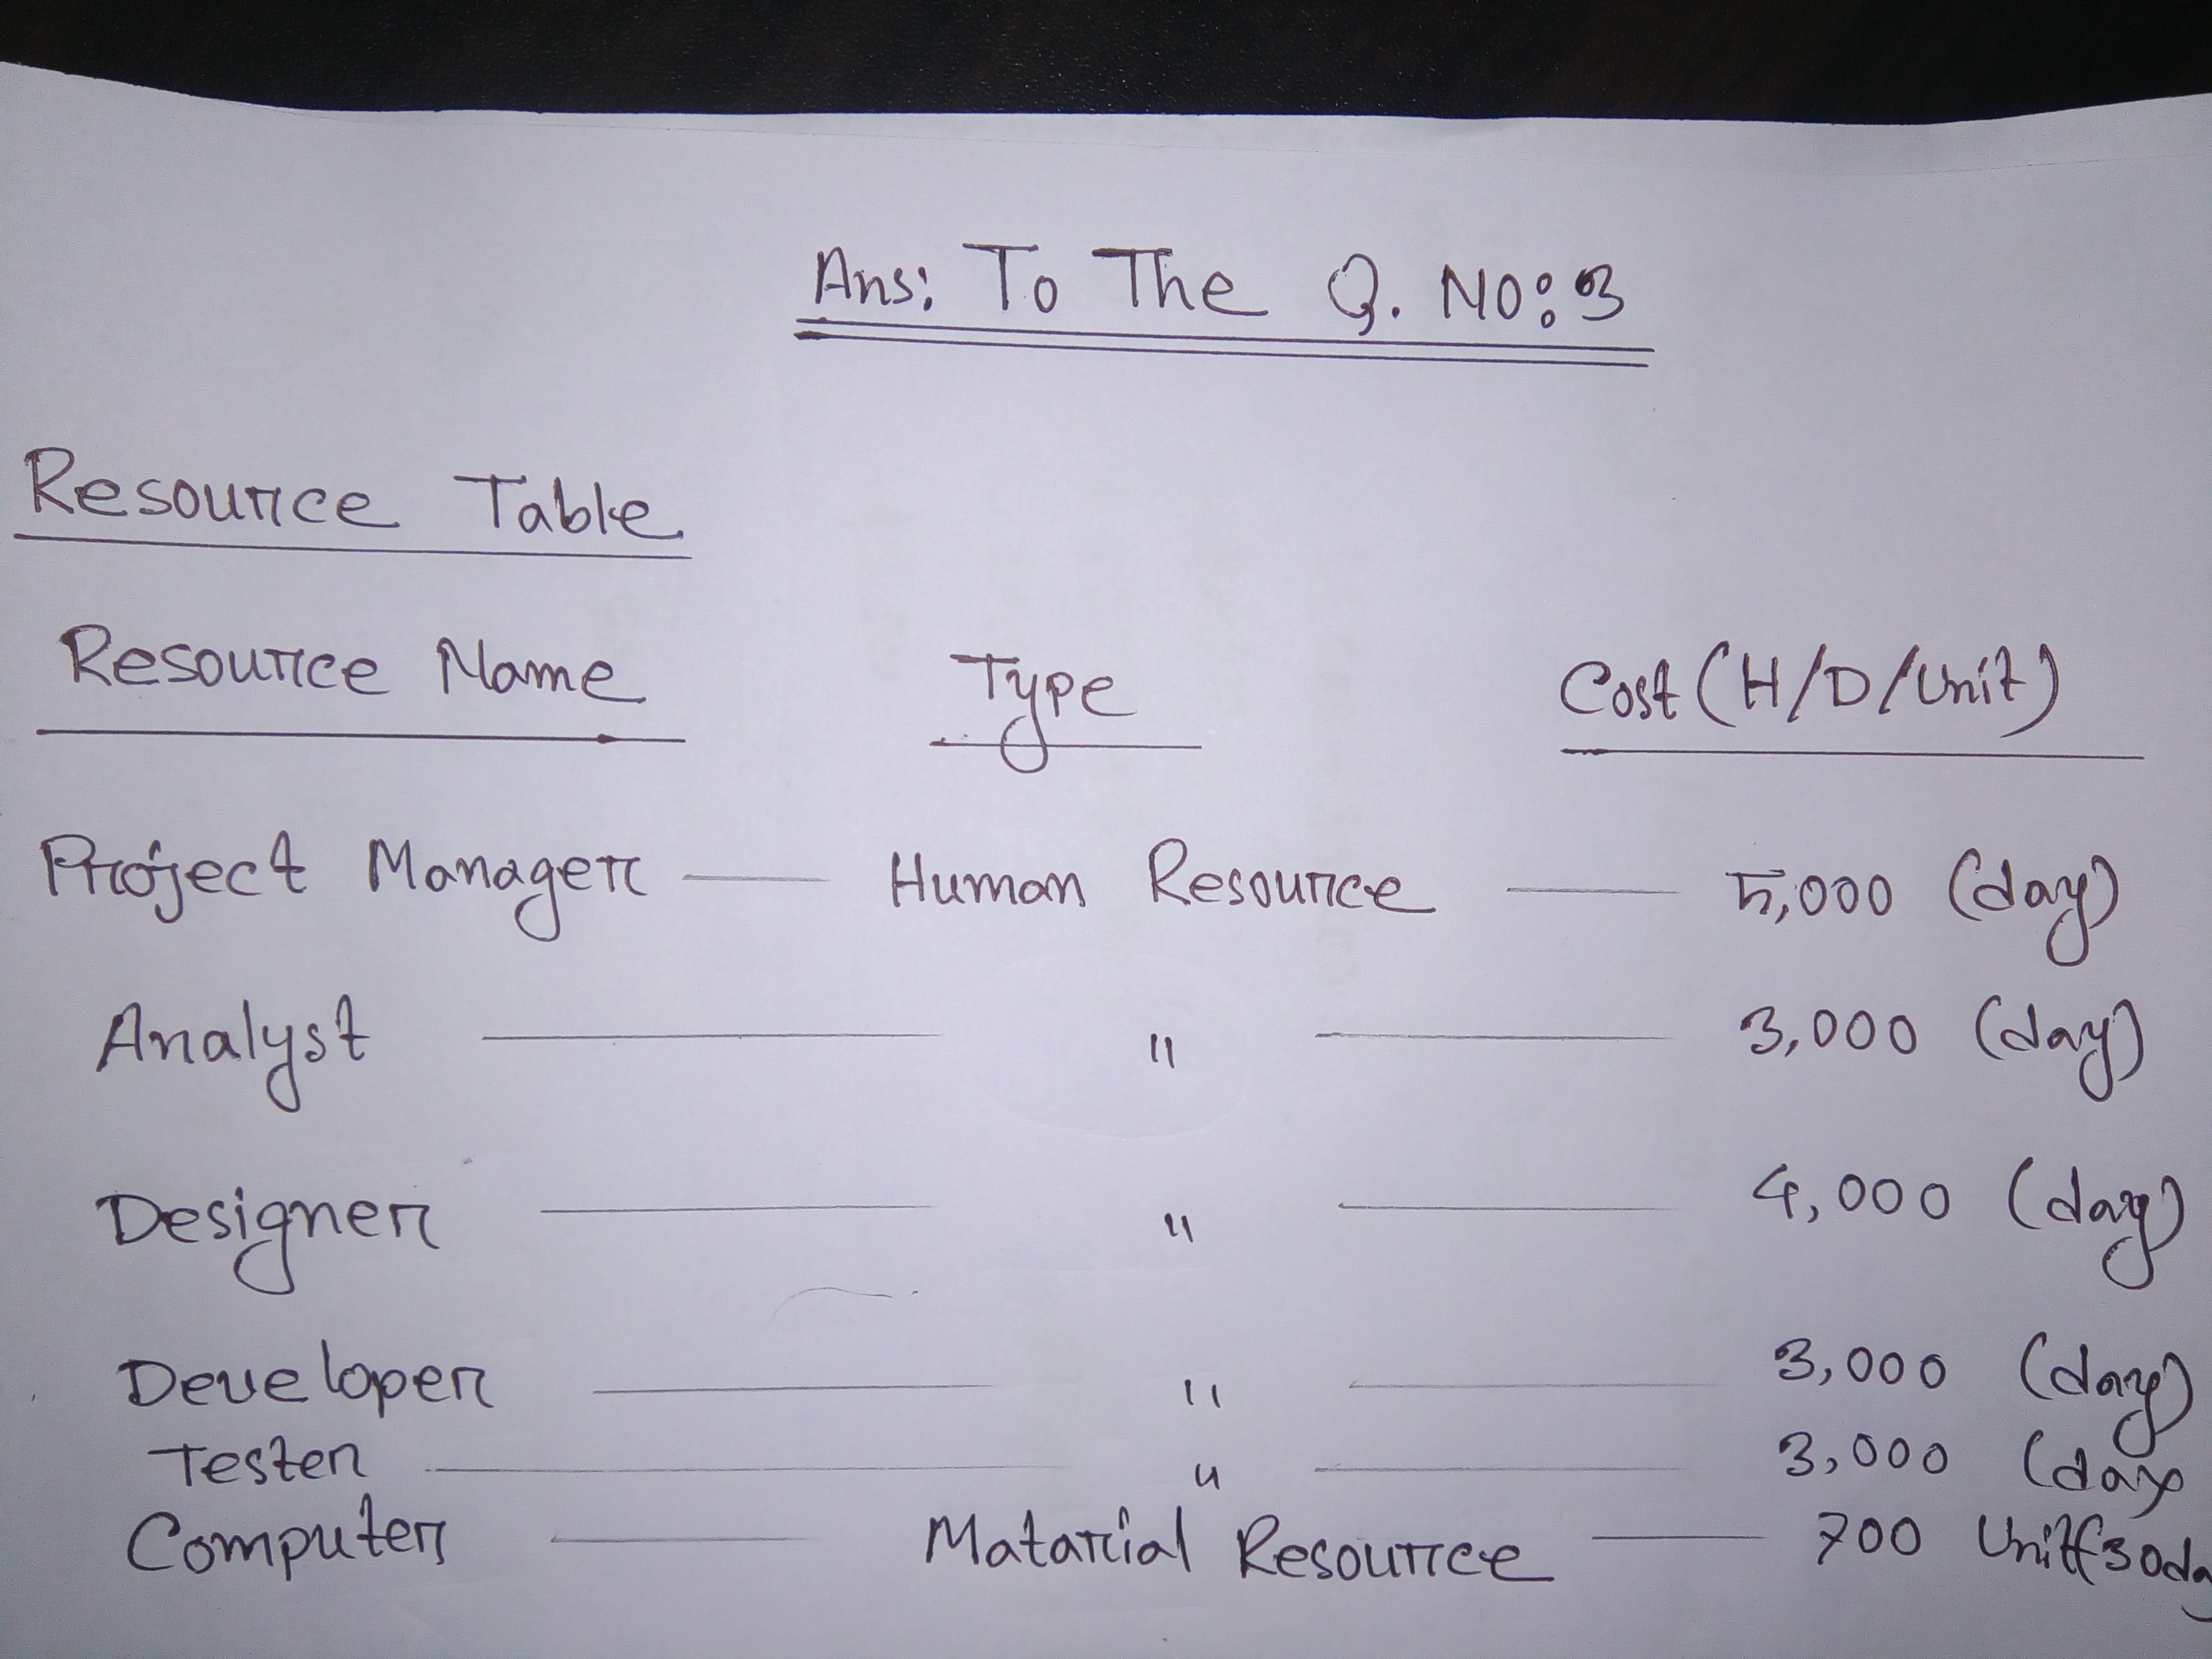 Ans: To The Q. NO: 3
Resource Table
Resource Name Type Cost (H/D/Unit)
Project Manager — Human Resource — 5,000 (day)
Analyst — " — 3,000 (day)
Designer — " — 4,000 (day)
Developer — " — 3,000 (day)
Tester — " — 3,000 (day
Computer — Matarial Resource — 700 Unit(30da